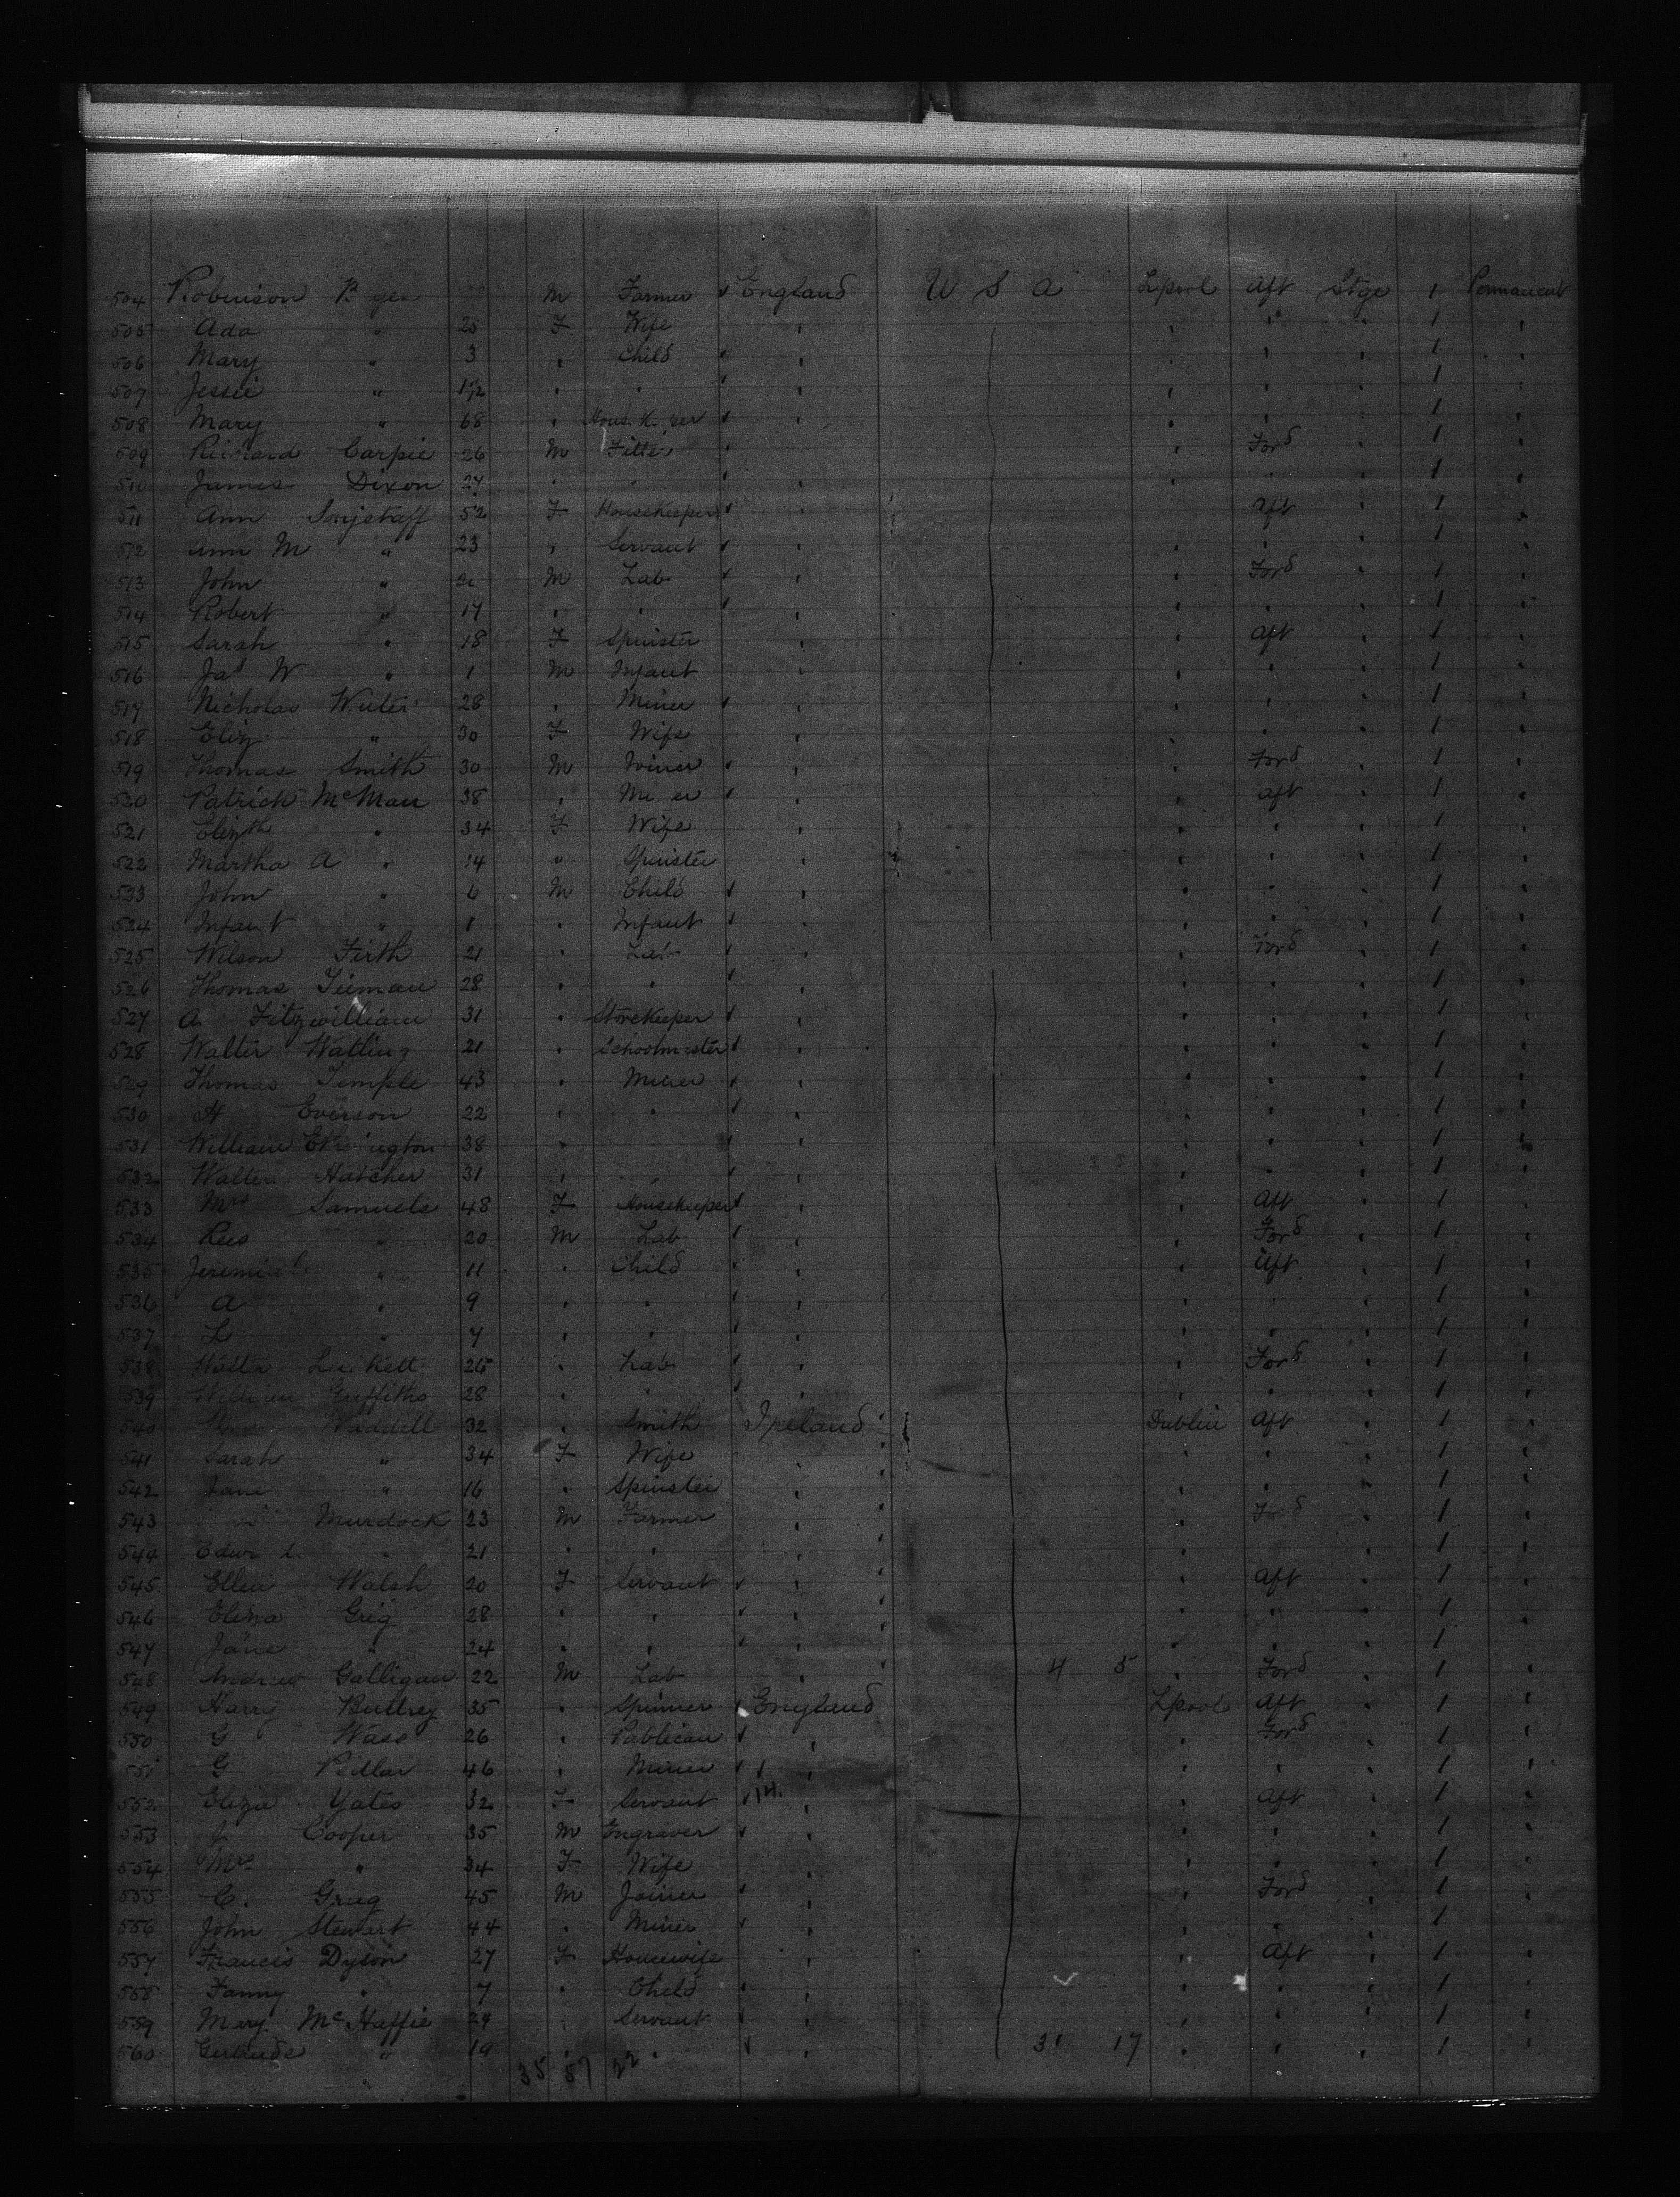 504 Robinson M Farmer England U S A Lpool Aft Stge 1 Permanent
505 Ada " 25 F Wife " " " " 1 "
506 Mary " 3 " Child " " " " 1 "
507 Jessie " " " " " " " 1 "
508 Mary " 68 " " " " " 1 "
509 Richard Carpie 26 M Fitter " " Ford " 1 "
510 James Dixon 24 " " " " " " 1 "
511 Ann 52 F Housekeeper " " Aft " 1 "
512 Ann M " 23 " Servant " " " " 1 "
513 John " M Lab " " Ford " 1 "
514 Robert " 17 " " " " " " 1 "
515 Sarah " 18 F Spinster " " Aft " 1 "
516 Jas W " 1 M Infant " " " " 1 "
517 Nicholas 28 " Miner " " " " 1 "
518 Eliz " 30 F Wife " " " " 1 "
519 Thomas Smith 30 M " " Ford " 1 "
520 Patrick McMan 38 " " " Aft " 1 "
521 Elizth " 34 F Wife " " " " 1 "
522 Martha A " 14 " Spinster " " " " 1 "
533 John " 6 M Child " " " " 1 "
524 Infant " 1 " Infant " " " " 1 "
525 Wilson Firth 21 " Lab " " Ford " 1 "
526 Thomas 28 " " " " " " 1 "
527 A Fitzwilliam 31 " Storekeeper " " " " 1 "
528 Walter Watling 21 " Schoolmaster " " " " 1 "
529 Thomas Temple 43 " Miner " " " " 1 "
530 H Everson 22 " " " " " " 1 "
531 William 38 " " " " " " 1 "
532 Walter Hatcher 31 " " " " " " 1 "
533 Mrs Samuels 48 F Housekeeper " " Aft " 1 "
534 Rees " 20 M Lab " " Ford " 1 "
535 Jeremiah " 11 " Child " " Aft " 1 "
536 A " 9 " " " " " " 1 "
537 L " 7 " " " " " " 1 "
538 26 " Lab " " Ford " 1 "
539 William Griffiths 28 " " " " " " 1 "
540 Waddell 32 " Smith Ireland " Dublin Aft " 1 "
541 Sarah " 34 F Wife " " " " 1 "
542 Jane " 16 " Spinster " " " " 1 "
543 Murdock 23 M Farmer " " Ford " 1 "
544 " 21 " " " " " " 1 "
545 Ellen Walsh 20 F Servant " " Aft " 1 "
546 Greig 28 " " " " " " 1 "
547 Jane " 24 " " " " " " 1 "
548 Andrew Galligan 22 M Lab " 4 5 " Ford " 1 "
549 Harry 35 " Spinner England Lpool Aft " 1 "
550 G Wass 26 " Publican " " Ford " 1 "
551 G 46 " Miner " " " " 1 "
552 Eliza Yates 32 F Servant 14. " " Aft " 1 "
553 J Cooper 35 M Engraver " " " " 1 "
554 Mrs " 34 F Wife " " " " 1 "
555 C. Grieg 45 M Joiner " " Ford " 1 "
556 John Stewart 44 " Miner " " " " 1 "
557 Francis Dyson 27 F Housewife " " Aft " 1 "
558 Fanny " 7 " Child " " " " 1 "
559 Mary McHaffie 29 " Servant " " " " 1 "
560 Gertrude " 19 " " " 31 17 " " " 1 "
35 57 22